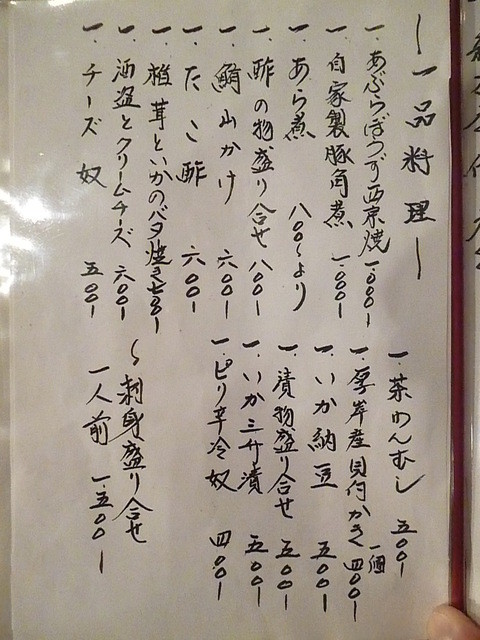 一品料理
一、あぶらぼうず西京焼 一、〇〇〇一
一、自家製豚角煮 一、〇〇〇一
一、あら煮 八〇〇〜より
一、酢の物盛り合せ 八〇〇一
一、鮪山かけ 六〇〇一
一、たこ酢 六〇〇一
一、椎茸といかのバタ焼き 七〇〇一
一、酒盗とクリームチーズ 六〇〇一
一、チーズ奴 五〇〇一
一、茶わんむし 五〇〇一
一、厚岸産貝付かき 一個 四〇〇一
一、いか納豆 五〇〇一
一、漬物盛り合せ 五〇〇一
一、いか三升漬 五〇〇一
一、ピリ辛冷奴 四〇〇一
〜刺身盛り合せ
一人前 一、五〇〇一